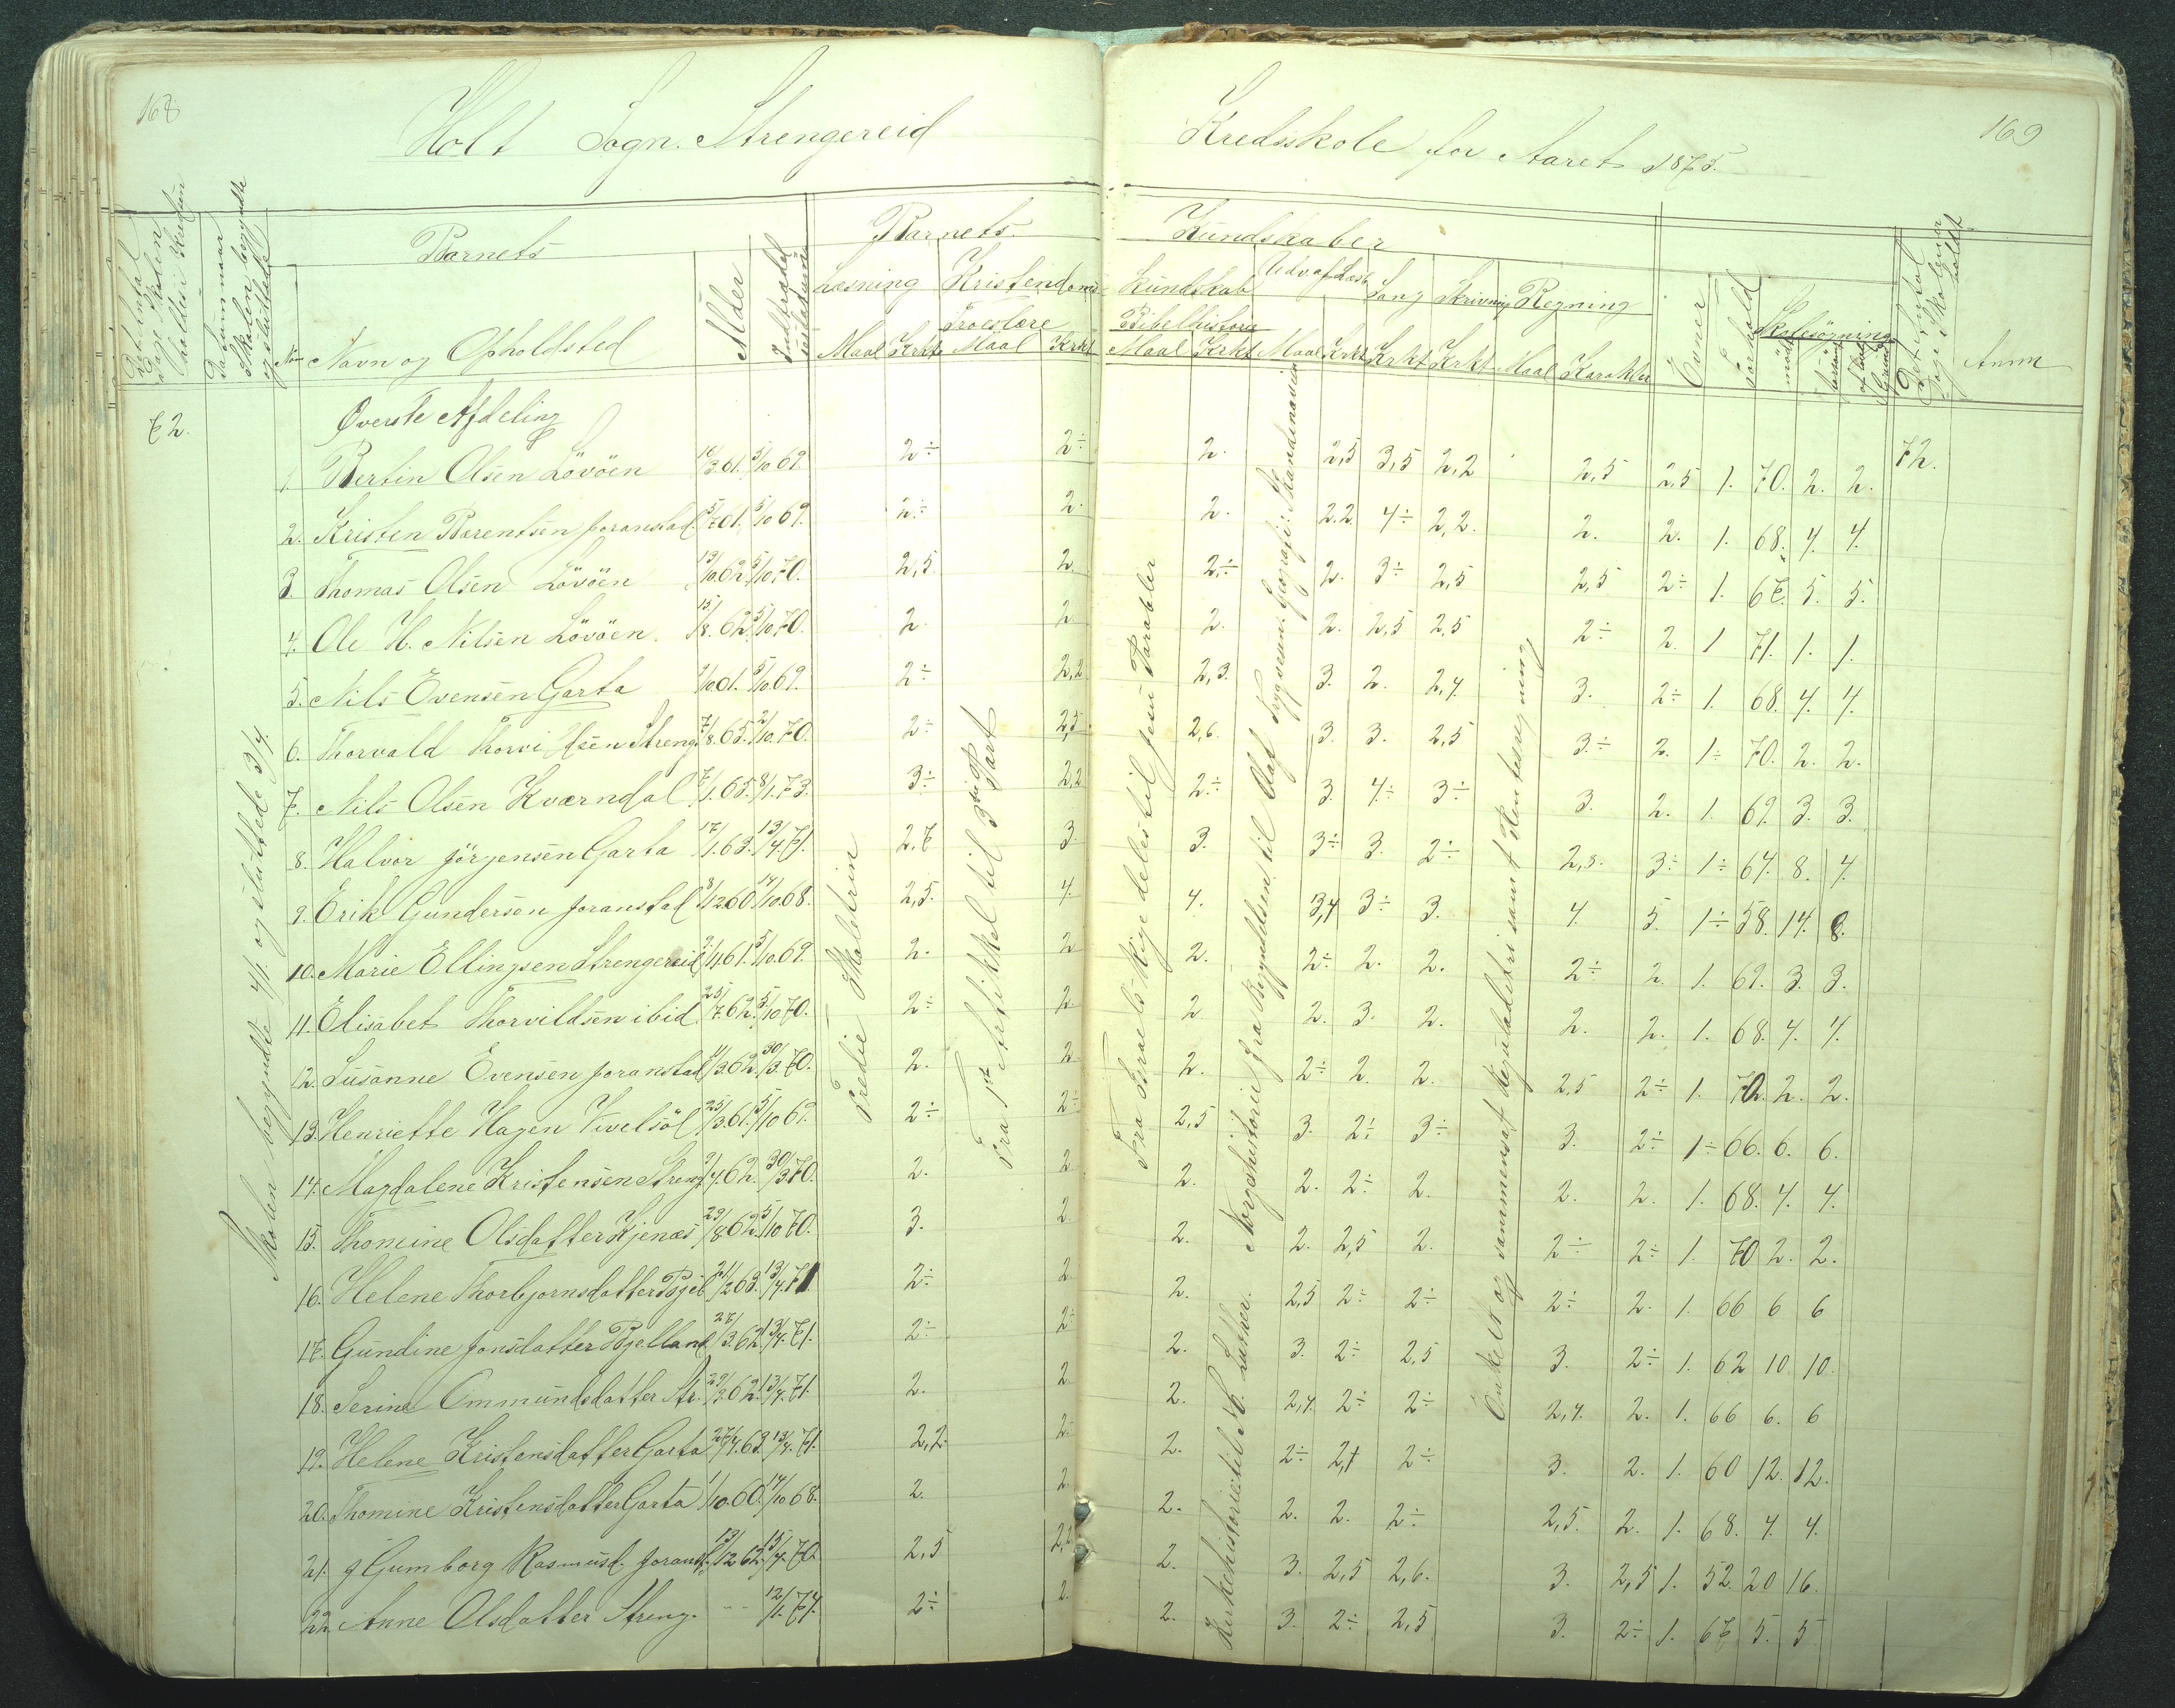 168
169
Holt Sogn. Strengereid
Kredsskole for Aaret 1875.
Barnets
Barnets
Kundskaber
Navn og Opholdsted
Alder
Læsning
Kristendoms
Kundskab
Sang
Skrivning
Regning
Evner
Forhold
Skolesøgning
Anm
Troeslære
Bibelhistorie
Maal
Krkt
Maal
Krkt
Maal
Krkt
Maal
Krkt
Krkt
Krkt
Maal
Karakter
Øverste Afdeling
72.
72.
Skolen begyndte 4/1. og sluttede 3/4.
Tredie Skoletrin
Fra 1st Artikkel til 3die Part
Fra Israels Rige deles til Jesu Parabler
Norgeshistorie fra Begyndelsen til Olaf Trygvesøn. Geografi: Skandinavien
Kirkehistorie til Luther.
Enkelt og sammensat Reguladetri samt Rentesregning
1. Bertin Olsen Lövöen 16/3.61. 5/10 69. 2÷ 2÷ 2. 2,5 3,5 2,2 2,5 2,5 1. 70. 2. 2.
2. Kristen Barentsen Joranstad. 5/7.61. 5/10 69. 2÷ 2. 2. 2.2. 4÷ 2,2. 2. 2. 1. 68. 4. 4.
3. Thomas Olsen Lövöen 13/10.62. 5/10.70. 2,5. 2. 2÷ 2. 3÷ 2,5 2,5 2÷ 1. 67. 5. 5.
4. Ole H. Nilsen Lövöen. 15/8.62. 5/10.70. 2. 2. 2. 2. 2,5 2,5 2÷ 2. 1 71. 1. 1.
5. Nils Evensen Garta 5/10 69. 2÷ 2,2 2,3. 3. 2. 2,4. 3. 2÷ 1. 68. 4. 4.
6. Thorvald Thorvildsen Streng. 7/8.63. 2/10.70. 2÷ 2,5 2,6. 3. 3. 2,5 3÷ 2. 1÷ 70. 2. 2.
7. Nils Olsen Kværndal 7/1.65. 8/1.73. 3÷ 2,2 2÷ 3. 4÷ 3÷ 3. 2. 1. 69. 3. 3.
8. Halvor Jörgensen Garta 17/1.63. 13/4.71. 2.7 3. 3. 3÷ 3. 2÷ 2,3. 3÷ 1÷ 64. 8. 4.
9. Erik Gundersen Joranstad 8/12 60. 14/10.68. 2,5. 4. 4. 3,4 3÷ 3. 4. 5. 1÷ 58. 14. 8.
10. Marie Ellingsen Strengereid 5/10.69. 2. 2 2. 2÷ 2. 2. 2÷ 2. 1. 69. 3. 3.
11. Elisabet Thorvildsen ibid. 25/7.62. 5/10 70. 2÷ 2. 2 2. 3. 2. 2. 2. 1. 68. 4. 4.
12. Susanne Evensen Joranstad 30/3.70. 2. 2 2. 2÷ 2. 2. 2,5 2÷ 1. 70. 2. 2.
13. Henriette Hagen Tvelsöl 25/3.61. 5/10 69. 2÷ 2÷ 2,5 3. 2÷ 3÷ 3. 2÷ 1÷ 66. 6. 6.
14. Magdalene Kristensen Streng. 30/3.70. 2. 2 2. 2. 2÷ 2. 2. 2. 1. 68. 4. 4.
15. Thomine Olsdatter Kjenæs 29/8 62. 5/10 70. 3. 2. 2. 2. 2,5 2. 2÷ 2÷ 1. 70 2. 2.
16. Helene Thorbjornsdatter 21/2 63. 13/4.71. 2÷ 2 2. 2,5 2÷ 2÷ 2÷ 2. 1. 66 6 6
17. Gundine Jonsdatter Bjelland 27/3.62. 13/4.71. 2÷ 2÷ 2. 3. 2÷ 2,5 3. 2÷ 1. 62 10 10.
18. Serine Ommundsdatter Str. 13/4.71. 2. 2. 2. 2,4. 2÷ 2÷ 2,4. 2. 1. 66 6. 6
19. Helene Kristensdatter Garta 27/4.63. 13/4.71. 2,2. 2÷ 2. 2÷ 2,1 2÷ 3. 2. 1. 60 12. 12.
20. Thomine Kristensdatter Garta 1/10.60. 14/10 68. 2. 2. 2. 2. 2. 2÷ 2,5. 2. 1. 68. 4. 4.
21. Gumborg Rasmusd. Joranst. 13/12 62. 15/4.70. 2,5 2,2 2. 3. 2,5 2,6. 3. 2,5 1. 52. 20 16.
22. Anne Olsdatter Streng. -- 12/1.74. 2÷ 2. 2. 3. 2÷ 2,5 3. 2÷ 1. 67 5. 5